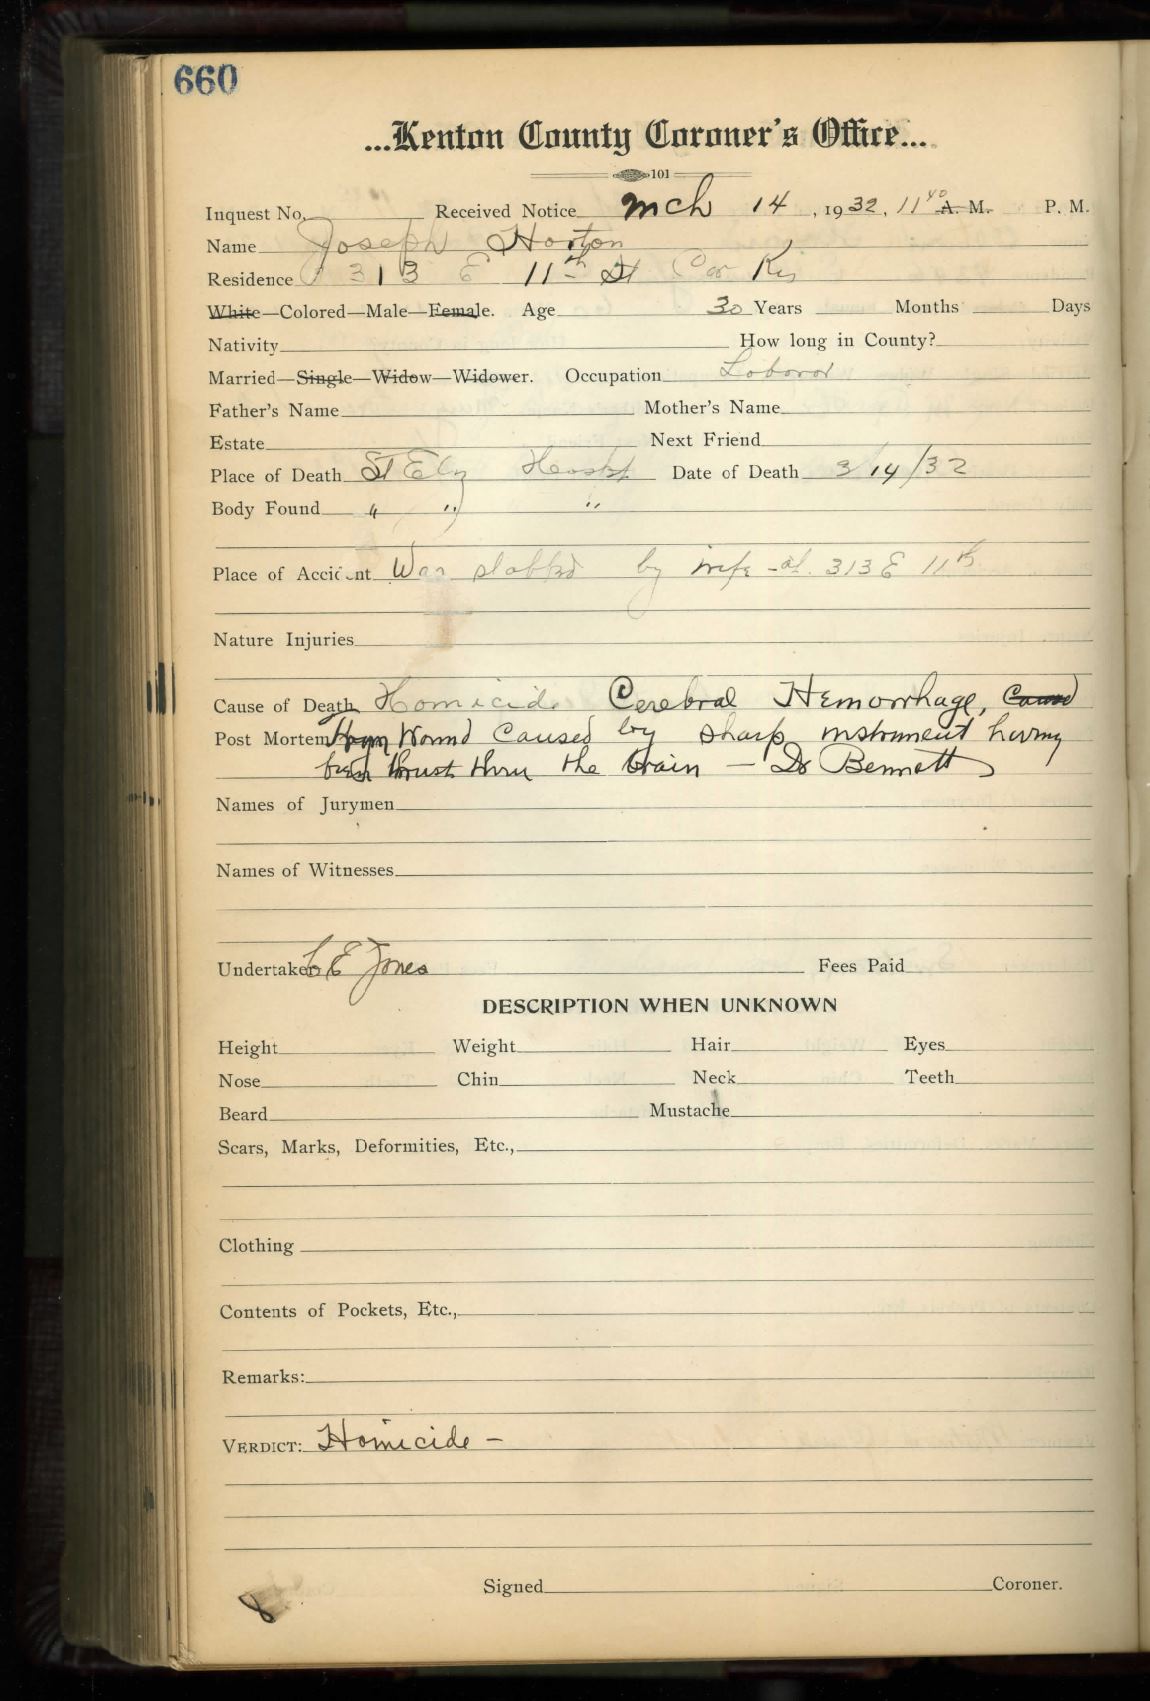 660
...Kenton County Coroner's Office...
101
Inquest No. Received Notice Mch 14, 1932, 11 40 A. M. P. M.
Name Joseph Horton
Residence 313 E 11th St Cov Ky
White—Colored—Male—Female. Age 30 Years Months Days
Nativity How long in County?
Married—Single—Widow—Widower. Occupation Laborer
Father's Name Mother's Name
Estate Next Friend
Place of Death St Elz Hospt Date of Death 3/14/32
Body Found " " "
Place of Accident Was stabbed by wife - at. 313 E 11th
Nature Injuries
Cause of Death Homicide Cerebral Hemorrhage, Caused
Post Mortem from Wound Caused by sharp instrument having
been thrust thru the brain — Dr Bennett
Names of Jurymen
Names of Witnesses
Undertaker C E Jones Fees Paid
DESCRIPTION WHEN UNKNOWN
Height Weight Hair Eyes
Nose Chin Neck Teeth
Beard Mustache
Scars, Marks, Deformities, Etc.,
Clothing
Contents of Pockets, Etc.,
Remarks:
VERDICT: Homicide —
Signed Coroner.